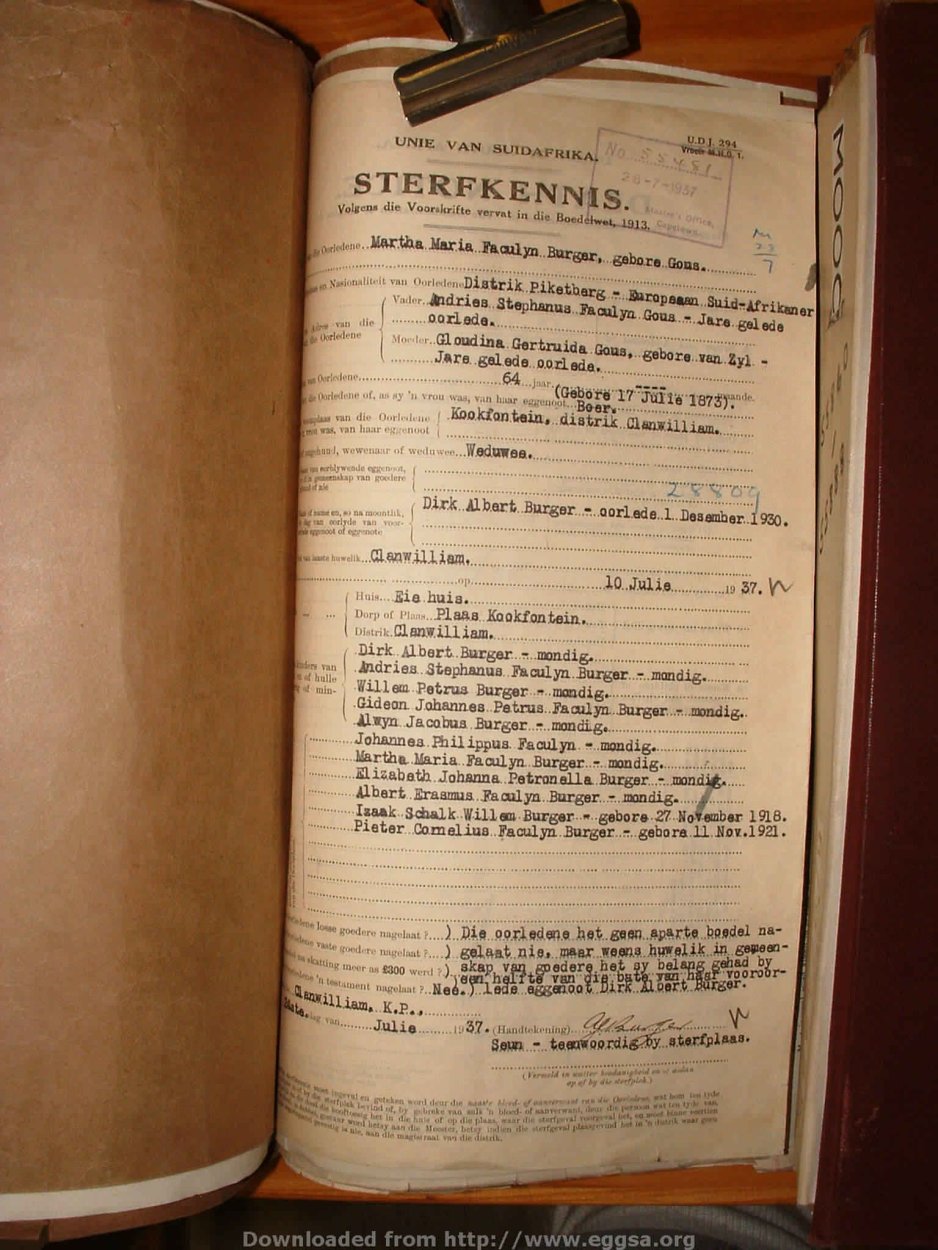 UNIE VAN SUIDAFRIKA.
U.D.J. 294
Vroeër M.H.G. 1.
No 55481
28-7-1937
Master's Office,
STERFKENNIS.
Volgens die Voorskrifte vervat in die Boedelwet, 1913.
die Oorledene Martha Maria Faculyn Burger, gebore Gous.
7
en Nasionaliteit van Oorledene Distrik Piketberg - Europeaan Suid-Afrikaner
Vader Andries Stephanus Faculyn Gous - Jare gelede
oorlede.
Adres van die
die Oorledene
Moeder Gloudina Gertruida Gous, gebore van Zyl -
Jare gelede oorlede.
van Oorledene 64 jaar ---- maande.
(Gebore 17 Julie 1873).
die Oorledene of, as sy 'n vrou was, van haar eggenoot Boer.
van die Oorledene
vrou was, van haar eggenoot
Kookfontein, distrik Clanwilliam.
ongehuud, wewenaar of weduwee Weduwee.
van oorblywende eggenoot,
in gemeenskap van goedere
of nie
28809
of name en, so na moontlik,
dag van oorlyde van voor-
eggenoot of eggenote
Dirk Albert Burger - oorlede 1 Desember 1930.
van laaste huwelik Clanwilliam.
op 10 Julie 19 37.
Huis Eie huis.
Dorp of Plaas Plaas Kookfontein.
Distrik Clanwilliam.
kinders van
of hulle
of min-
Dirk Albert Burger - mondig.
Andries Stephanus Faculyn Burger - mondig.
Willem Petrus Burger - mondig.
Gideon Johannes Petrus Faculyn Burger - mondig.
Alwyn Jacobus Burger - mondig.
Johannes Philippus Faculyn - mondig.
Martha Maria Faculyn Burger - mondig.
Elizabeth Johanna Petronella Burger - mondig.
Albert Erasmus Faculyn Burger - mondig.
Izaak Schalk Willem Burger - gebore 27 November 1918.
Pieter Cornelius Faculyn Burger - gebore 11 Nov.1921.
losse goedere nagelaat ? ) Die oorledene het geen aparte boedel na-
vaste goedere nagelaat ? ) gelaat nie, maar weens huwelik in gemeen-
na skatting meer as £300 werd ? ) skap van goedere het sy belang gehad by
'n testament nagelaat ? Nee. ) een helfte van die bate van haar vooroor-
lede eggenoot Dirk Albert Burger.
Clanwilliam, K.P.,
dag van Julie 1937. (Handtekening) Burger
Seun - teenwoordig by sterfplaas.
(Vermeld in watter hoedanigheid en of aldan
op of by die sterfplek.)
MOOC
Downloaded from http://www.eggsa.org